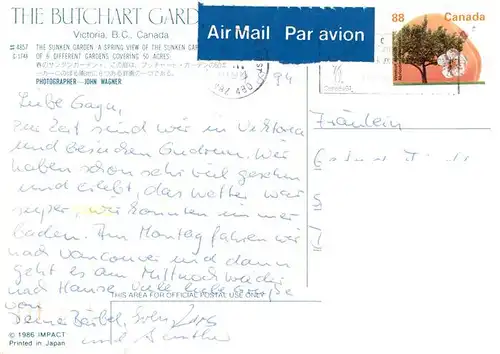 THE BUTCHART GARD
Victoria, B.C., Canada
# 4857 THE SUNKEN GARDEN: A SPRING VIEW OF THE SUNKEN GAR
C-1746 OF 6 DIFFERENT GARDENS COVERING 50 ACRES.
PHOTOGRAPHER - JOHN WAGNER
Air Mail Par avion
88 Canada
94
Liebe Gaga,
Zur Zeit sind wir in Viktoria
und besuchen Gudrun. Wir
haben schon sehr viel gesehen
und erlebt, das Wetter war
super, wir konnten immer
baden. Am Montag fahren wir
nach Vancouver und dann
geht es am Mittwoch wieder
nach Hause. Viele liebe Grüße
von
Deine Bärbel,
und Günther
Fräulein
THIS AREA FOR OFFICIAL POSTAL USE
© 1986 IMPACT
Printed in Japan